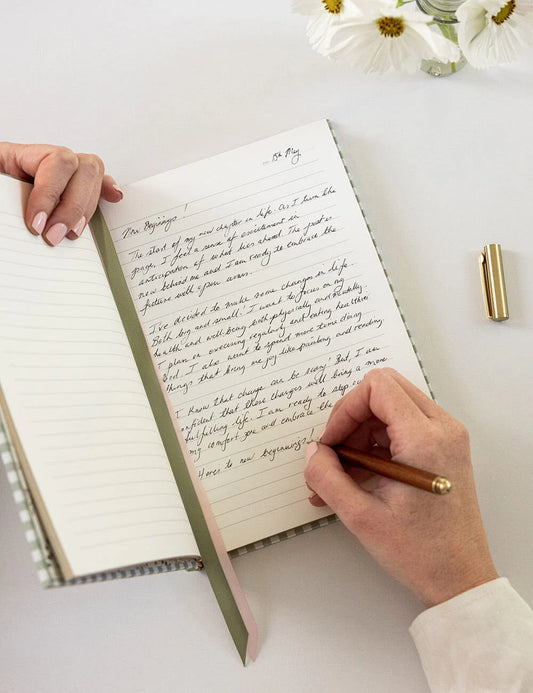 15th May
New Beginnings!
The start of my new chapter in life. As I turn the
page, I feel a sense of excitement in
anticipation of what lies ahead. The past is
now behind me and I am ready to embrace the
future with open arms.
I've decided to make some changes in life.
Both big and small! I want to focus on my
health and well being both physically and mentally.
I plan on exercising regularly and eating healthier
food. I also want to spend more time doing
things that bring me joy like painting and reading.
I know that change can be scary! But, I am
confident that these changes will bring a more
fulfilling life. I am ready to step
my comfort zone and embrace the
Heres to new beginnings!